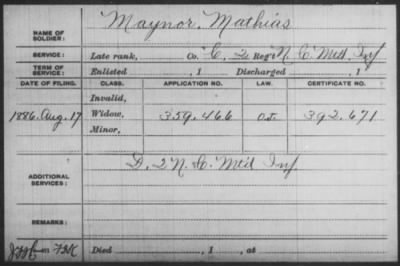 NAME OF SOLDIER: Maynor, Mathias
SERVICE: Late rank, Co. C, 2 Reg't N. C. Mt'd Inf
TERM OF SERVICE: Enlisted , 1 Discharged , 1
DATE OF FILING. CLASS. APPLICATION NO. LAW. CERTIFICATE NO.
Invalid,
1886. Aug. 17 Widow, 359.466 O.L. 392.671
Minor,
ADDITIONAL SERVICES: D. 2 N. C. Mt'd Inf.
REMARKS:
Died , 1 , at